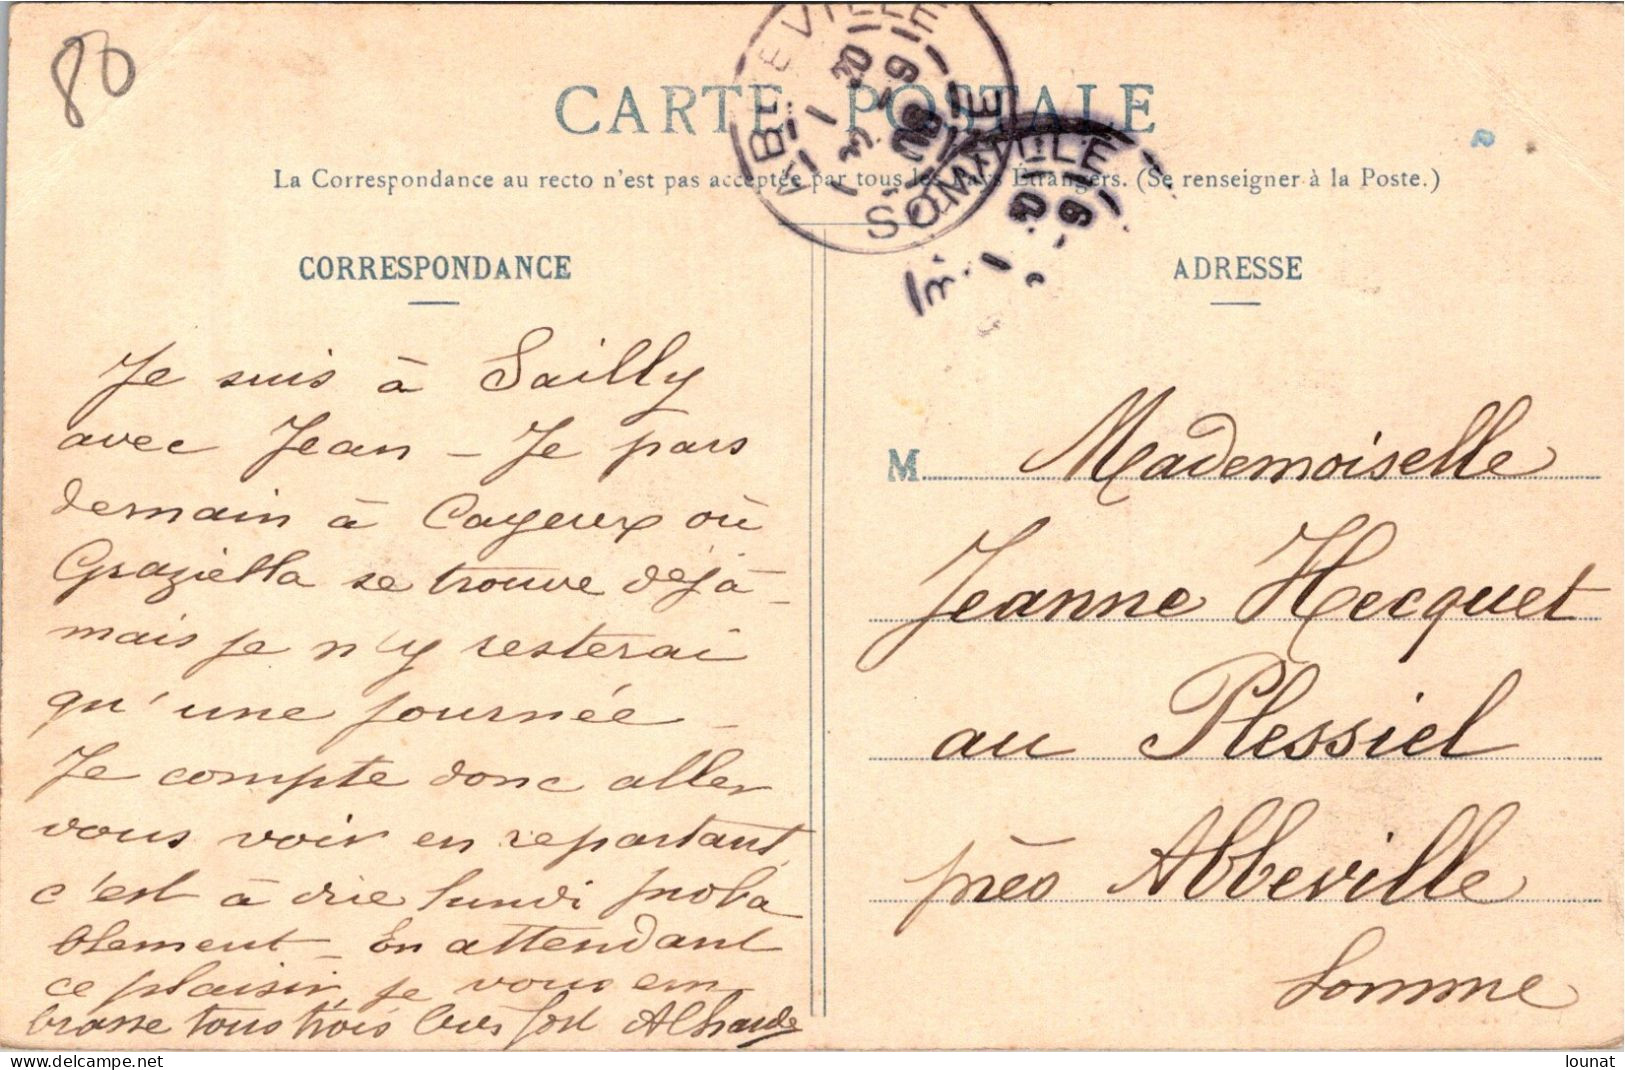 80
CARTE POSTALE
La Correspondance au recto n'est pas acceptée par tous les Pays Étrangers. (Se renseigner à la Poste.)
ABBEVILLE
SOMME
CORRESPONDANCE
Je suis à Sailly
avec Jean – Je pars
demain à Cayeux où
Graziella se trouve déjà –
mais je n'y resterai
qu'une journée –
Je compte donc aller
vous voir en repartant
c'est à dire lundi proba
blement – En attendant
ce plaisir je vous em
brasse tous trois bien fort
ADRESSE
M. Mademoiselle
Jeanne Hecquet
au Plessiel
près Abbeville
Somme
delcampe.net
lounat